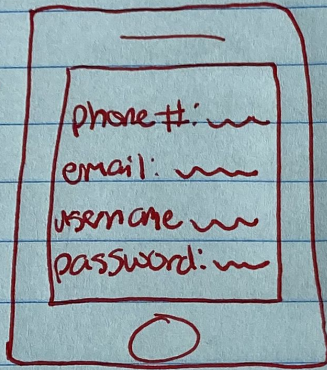 phone #:
email:
username
password: